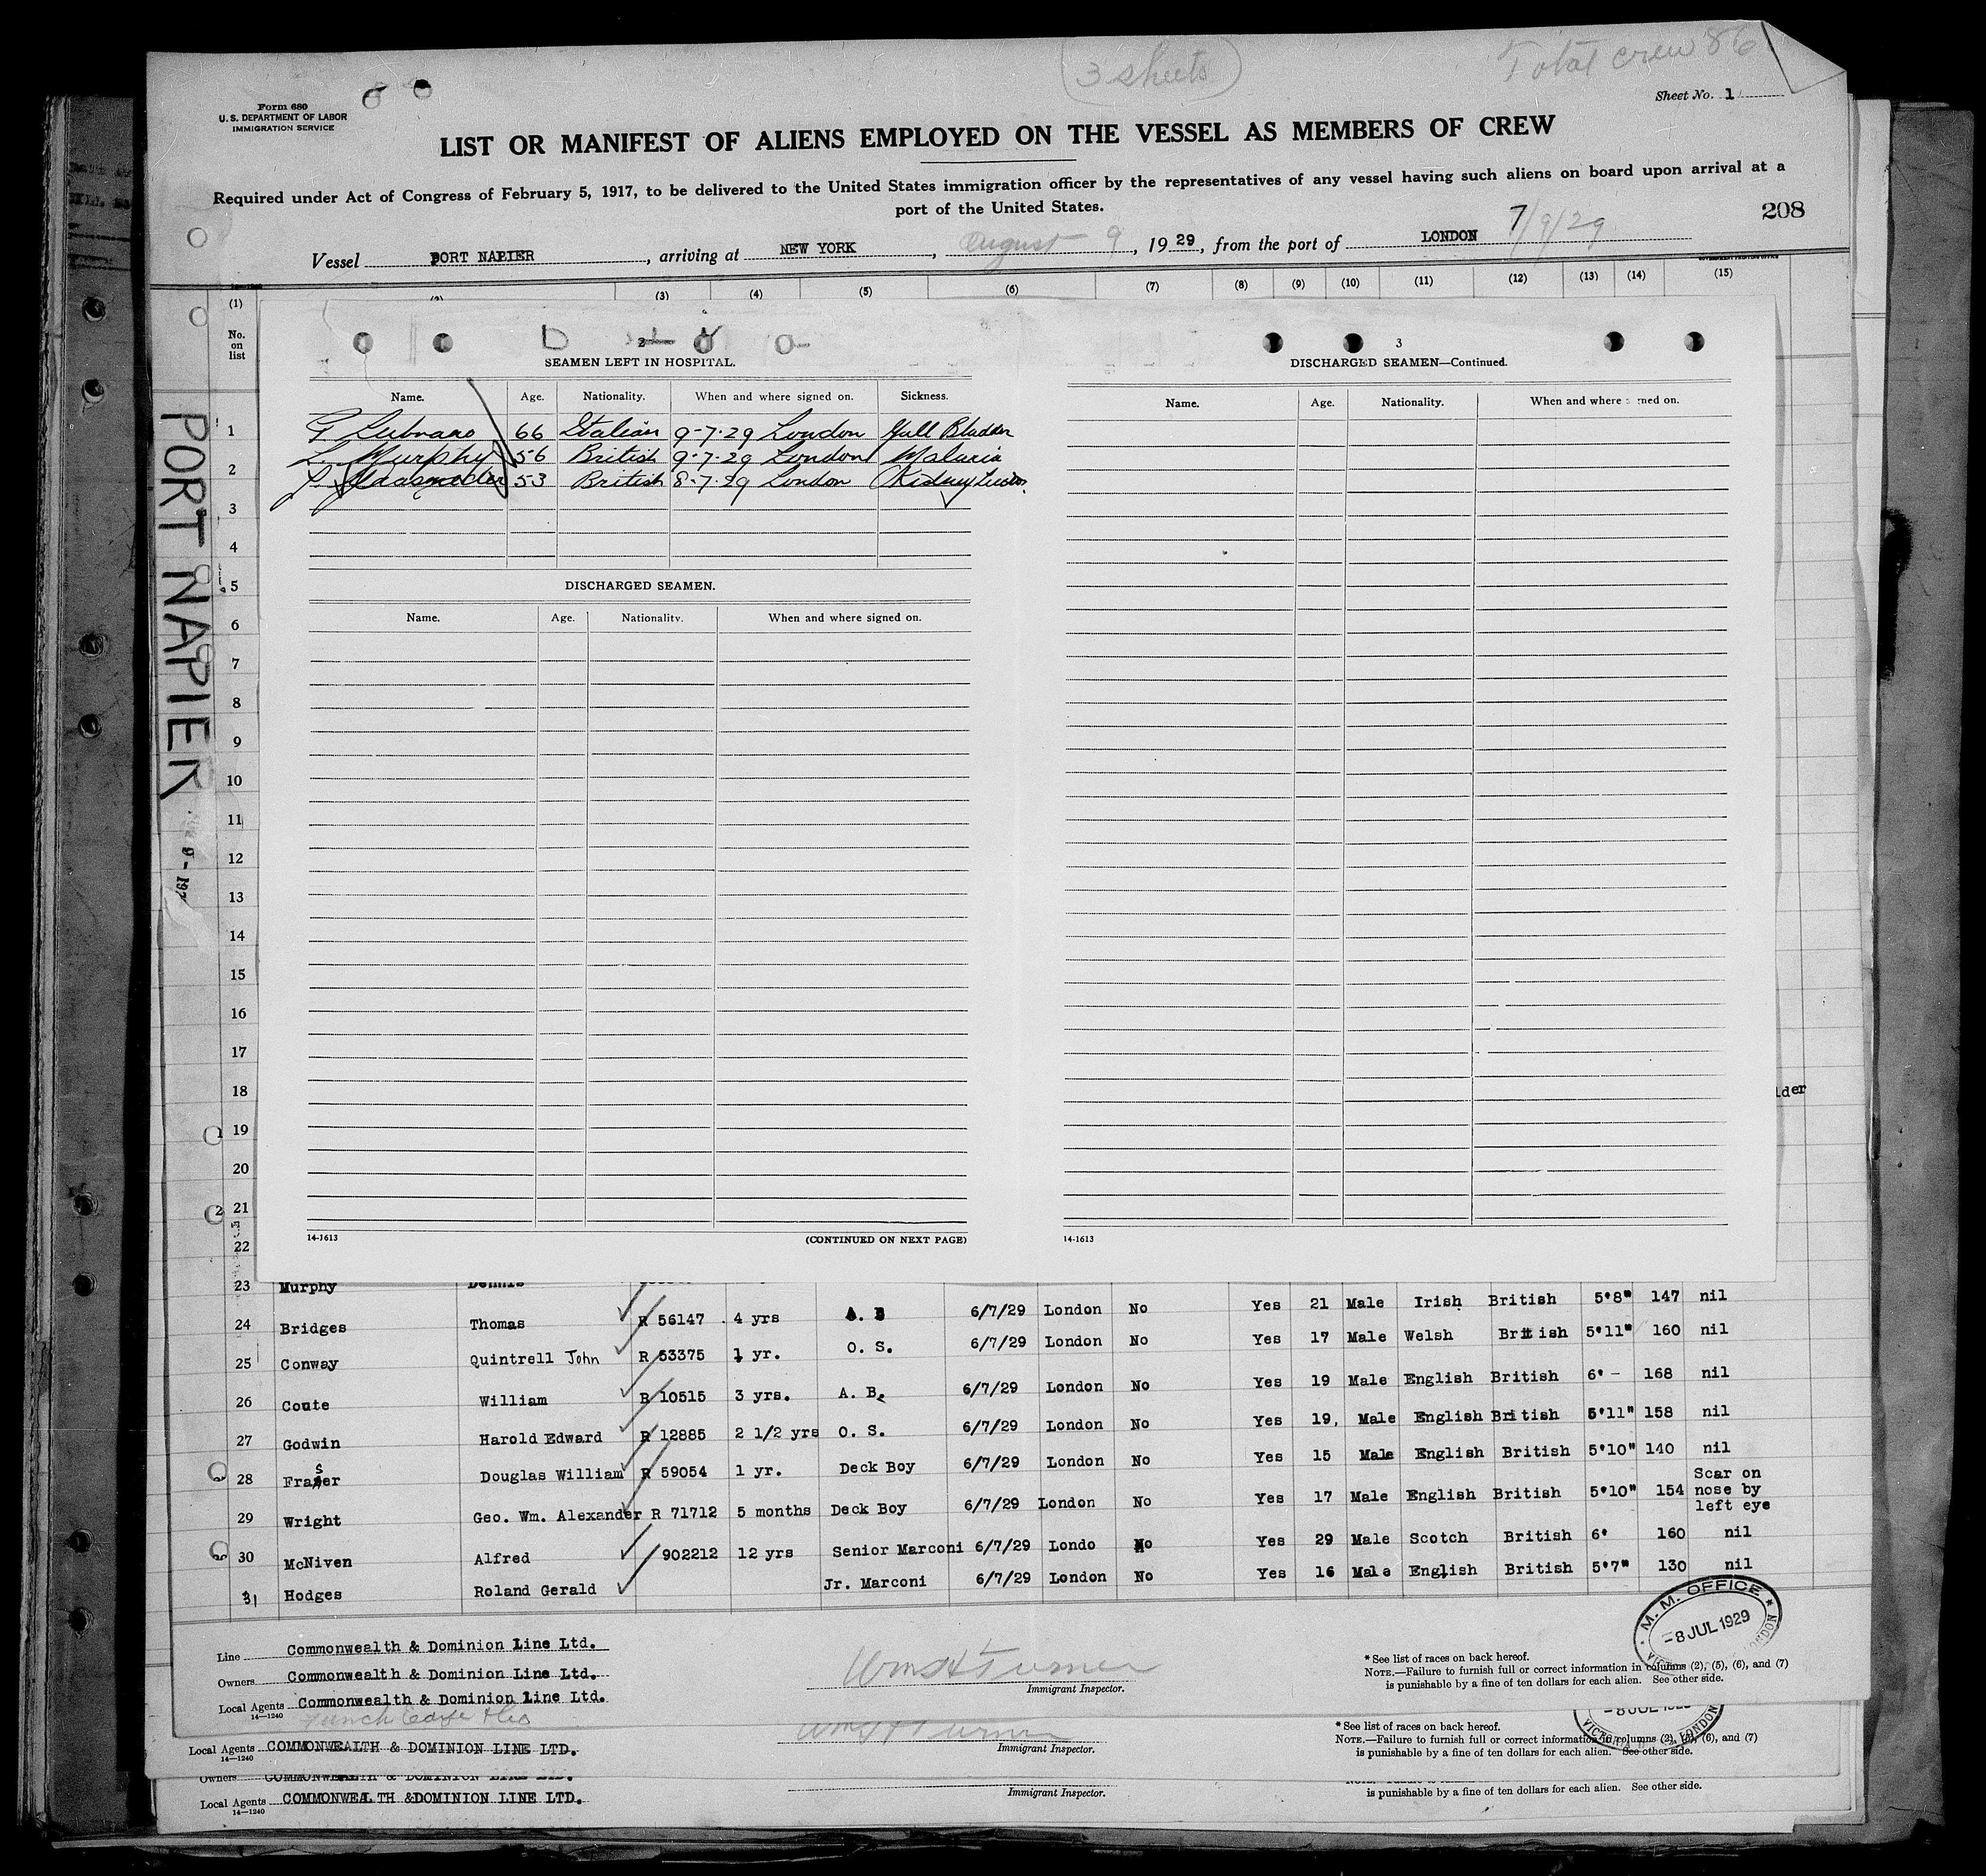 (3 sheets)
Total crew 86
Form 680
U. S. DEPARTMENT OF LABOR
IMMIGRATION SERVICE
Sheet No. 1
LIST OR MANIFEST OF ALIENS EMPLOYED ON THE VESSEL AS MEMBERS OF CREW
Required under Act of Congress of February 5, 1917, to be delivered to the United States immigration officer by the representatives of any vessel having such aliens on board upon arrival at a
port of the United States.
208
7/9/29
Vessel PORT NAPIER, arriving at NEW YORK, August 9, 1929, from the port of LONDON
(1) (2) (3) (4) (5) (6) (7) (8) (9) (10) (11) (12) (13) (14) (15)
No. on list
PORT NAPIER
2
SEAMEN LEFT IN HOSPITAL.
Name. Age. Nationality. When and where signed on. Sickness.
Lubrano 66 Italian 9-7-29 London Gall Bladder
L. Murphy 56 British 9-7-29 London Malaria
53 British 8-7-29 London Kidney
DISCHARGED SEAMEN.
Name. Age. Nationality. When and where signed on.
14-1613 (CONTINUED ON NEXT PAGE)
3
DISCHARGED SEAMEN—Continued.
Name. Age. Nationality. When and where signed on.
14-1613
1
2
3
4
5
6
7
8
9
10
11
12
13
14
15
16
17
18
19
20
21
22
23 Murphy Dennis
24 Bridges Thomas R 56147 4 yrs A. B 6/7/29 London No Yes 21 Male Irish British 5'8" 147 nil
25 Conway Quintrell John R 53375 1 yr. O. S. 6/7/29 London No Yes 17 Male Welsh British 5'11" 160 nil
26 Coute William R 10515 3 yrs. A. B. 6/7/29 London No Yes 19 Male English British 6'- 168 nil
27 Godwin Harold Edward R 12885 2 1/2 yrs O. S. 6/7/29 London No Yes 19, Male English British 5'11" 158 nil
28 Fraser Douglas William R 59054 1 yr. Deck Boy 6/7/29 London No Yes 15 Male English British 5'10" 140 nil
29 Wright Geo. Wm. Alexander R 71712 5 months Deck Boy 6/7/29 London No Yes 17 Male English British 5'10" 154 Scar on nose by left eye
30 McNiven Alfred 902212 12 yrs Senior Marconi 6/7/29 Londo No Yes 29 Male Scotch British 6' 160 nil
31 Hodges Roland Gerald Jr. Marconi 6/7/29 London No Yes 16 Male English British 5'7" 130 nil
Line Commonwealth & Dominion Line Ltd.
Owners Commonwealth & Dominion Line Ltd.
Local Agents Commonwealth & Dominion Line Ltd.
14—1240
Wm H Turner
Immigrant Inspector.
* See list of races on back hereof.
NOTE.—Failure to furnish full or correct information in columns (2), (5), (6), and (7)
is punishable by a fine of ten dollars for each alien. See other side.
M. M. OFFICE
-8 JUL 1929
Local Agents COMMONWEALTH & DOMINION LINE LTD.
14—1240
Wm H Turner
Immigrant Inspector.
* See list of races on back hereof.
NOTE.—Failure to furnish full or correct information in columns (2), (5), (6), and (7)
is punishable by a fine of ten dollars for each alien. See other side.
VICTORIA D LONDON
Owners COMMONWEALTH & DOMINION LINE LTD.
Local Agents COMMONWEALTH &DOMINION LINE LTD.
14—1240
Immigrant Inspector.
is punishable by a fine of ten dollars for each alien. See other side.